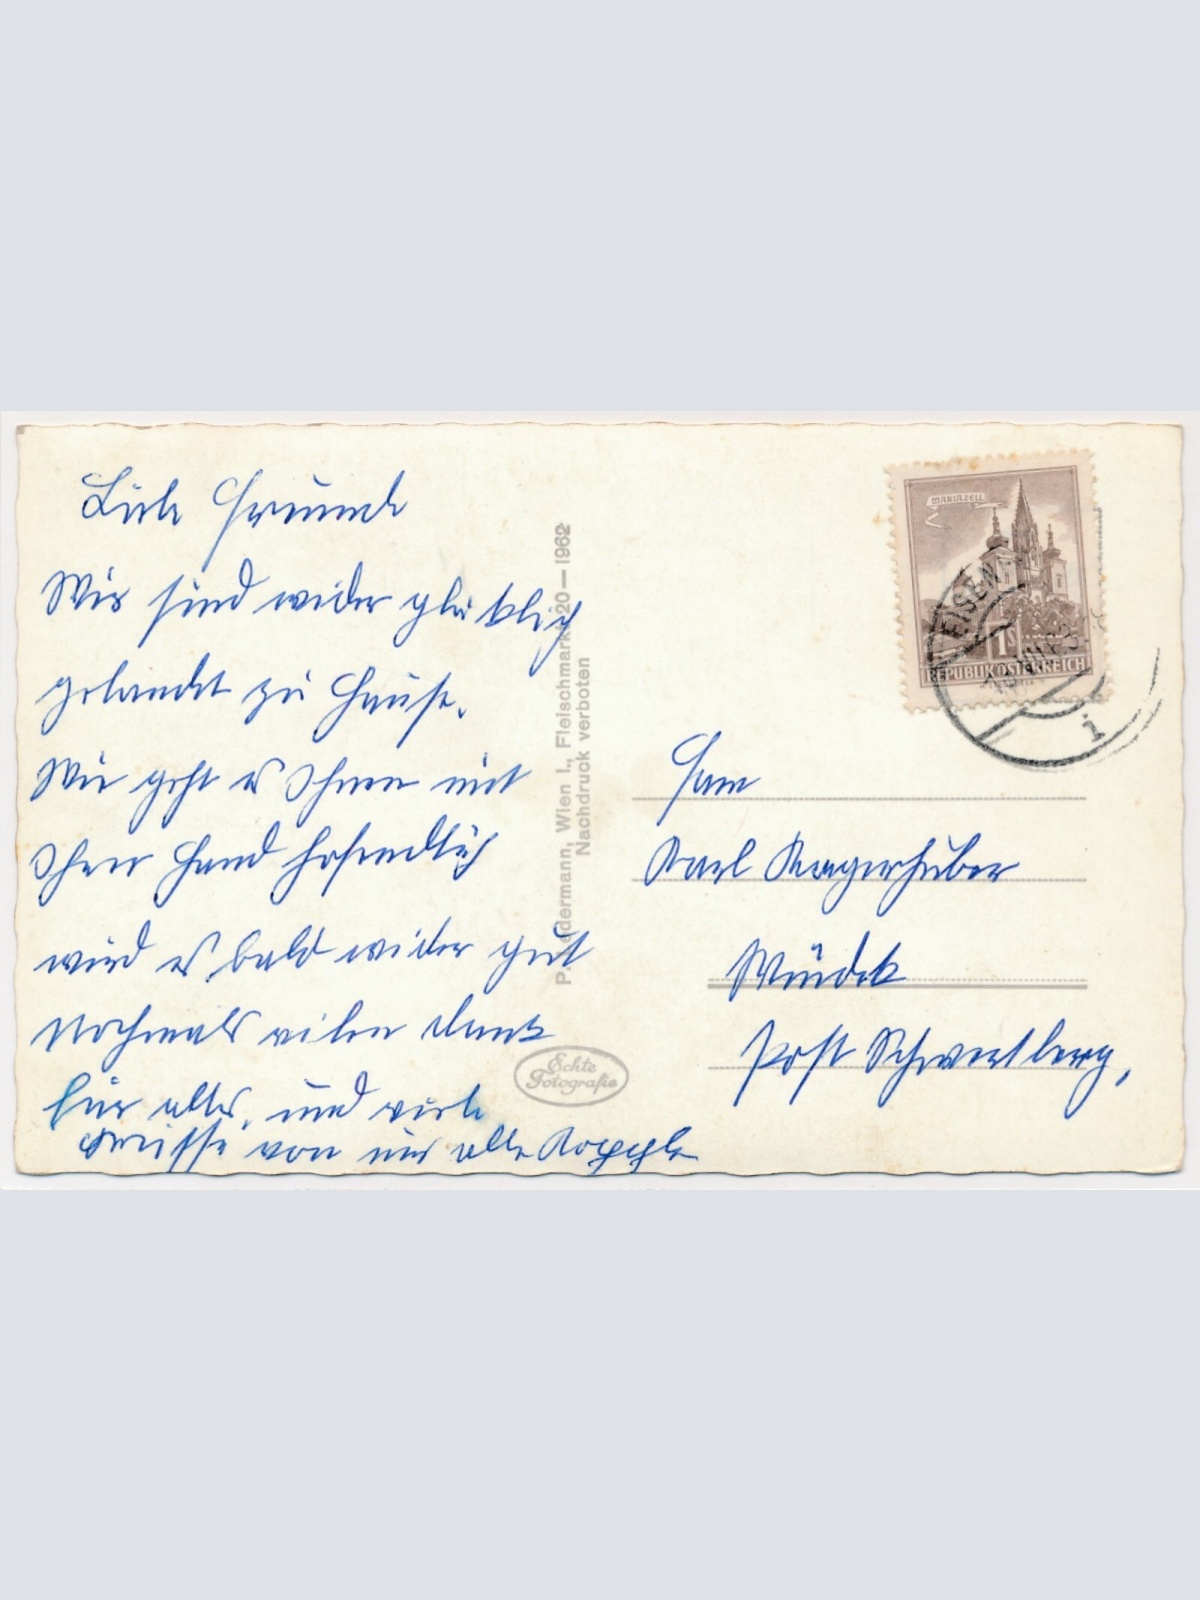 Liebe Freunde
Wir sind wider glüklich
gelandet zu Hause.
Wie geht es Ihnen mit
Ihrer Hand hofendlich
wird es bald wider gut
Nochmals vilen Dank
für alles, und viele
Grüsse von uns alle
P. Ledermann, Wien I., Fleischmarkt 20—1962
Nachdruck verboten
Echte
Fotografie
MARIAZELL
1S
REPUBLIK ÖSTERREICH
EISEN
i
Fam
Karl Kagerhuber
Windek
Post Schwertberg,